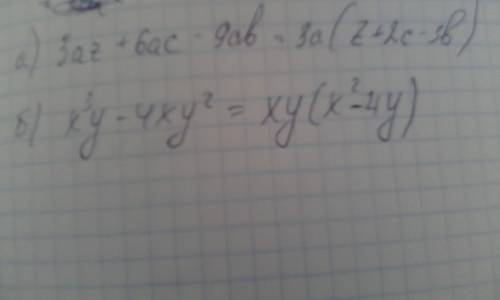 а) 3az + 6ac - 9ab = 3a(z+2c-3b)
б) x³y - 4xy² = xy(x²-4y)